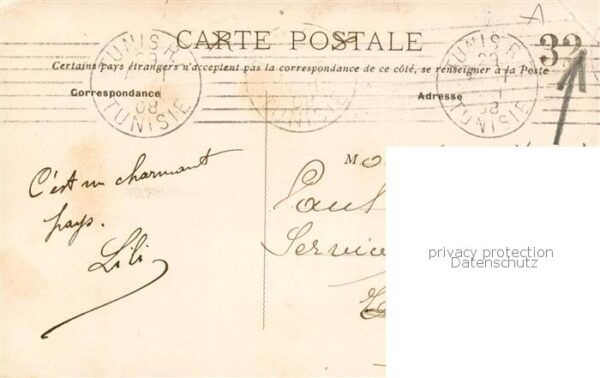 A
CARTE POSTALE
32
Certains pays étrangers n'acceptent pas la correspondance de ce côté, se renseigner à la Poste
TUNIS R.P
08
TUNISIE
TUNIS R.P
23
08
TUNISIE
Correspondance
Adresse
C'est un charmant
pays.
Lili
M
Paul
Service
privacy protection
Datenschutz